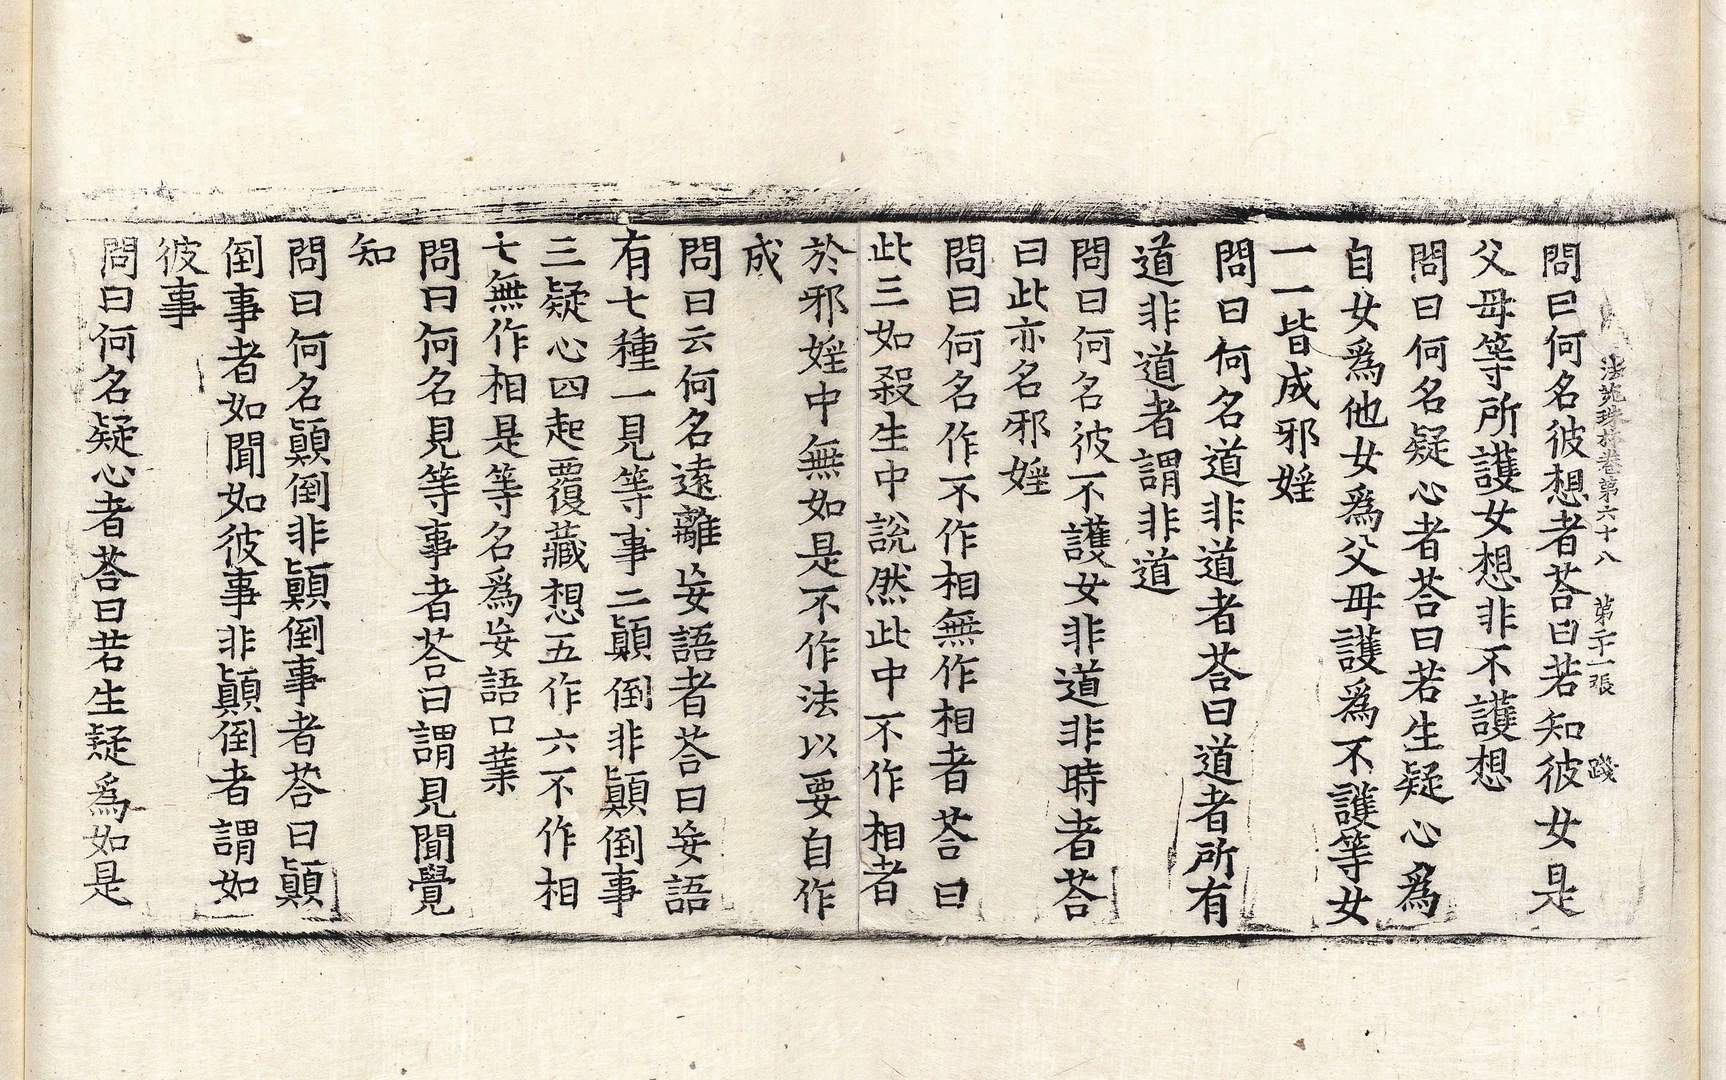 法苑珠林卷第六十八 第二十一張 踐
問曰何名彼想者荅曰若知彼女是
父母等所護女想非不護想
問曰何名疑心者荅曰若生疑心爲
自女爲他女爲父母護爲不護等女
一一皆成邪婬
問曰何名道非道者荅曰道者所有
道非道者謂非道
問曰何名彼不護女非道非時者荅
曰此亦名邪婬
問曰何名作不作相無作相者荅曰
此三如殺生中說然此中不作相者
於邪婬中無如是不作法以要自作
成
問曰云何名遠離妄語者荅曰妄語
有七種一見等事二顚倒非顚倒事
三疑心四起覆藏想五作六不作相
七無作相是等名爲妄語口業
問曰何名見等事者荅曰謂見聞覺
知
問曰何名顚倒非顚倒事者荅曰顚
倒事者如聞如彼事非顚倒者謂如
彼事
問曰何名疑心者荅曰若生疑爲如是